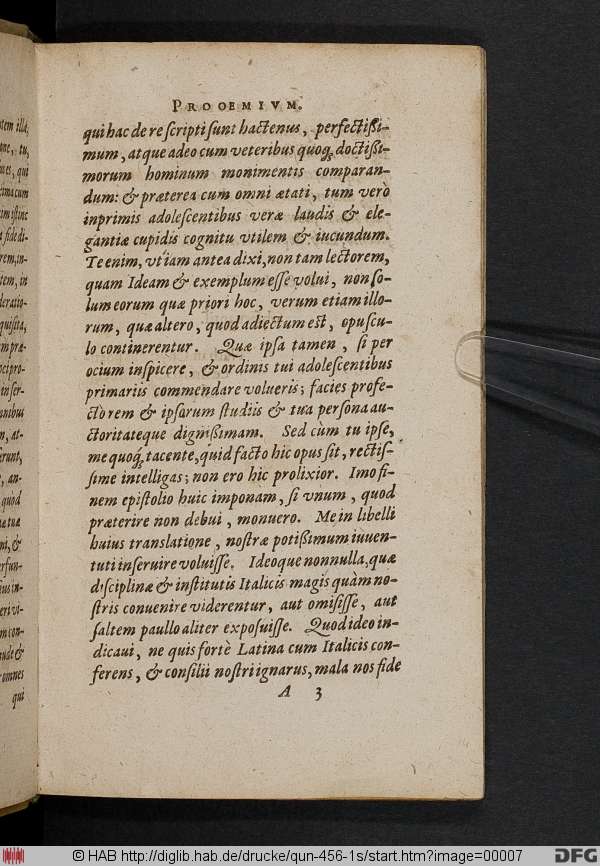 PROOEMIVM.
qui hac de re scripti sunt hactenus, perfectißi-
mum, atque adeo cum veteribus quoq; doctißi-
morum hominum monimentis comparan-
dum: & præterea cum omni ætati, tum verò
inprimis adolescentibus veræ laudis & ele-
gantiæ cupidis cognitu vtilem & iucundum.
Te enim, vt iam antea dixi, non tam lectorem,
quam Ideam & exemplum esse volui, non so-
lum eorum quæ priori hoc, verum etiam illo-
rum, quæ altero, quod adiectum est, opuscu-
lo continerentur. Quæ ipsa tamen, si per
ocium inspicere, & ordinis tui adolescentibus
primariis commendare volueris; facies profe-
cto rem & ipsarum studiis & tua persona au-
ctoritateque dignißimam. Sed cùm tu ipse,
me quoq; tacente, quid facto hic opus sit, rectis-
sime intelligas; non ero hic prolixior. Imo fi-
nem epistolio huic imponam, si vnum, quod
præterire non debui, monuero. Me in libelli
huius translatione, nostræ potißimum iuuen-
tuti inseruire voluisse. Ideoque nonnulla, quæ
disciplinæ & institutis Italicis magis quàm no-
stris conuenire viderentur, aut omisisse, aut
saltem paullo aliter exposuisse. Quod ideo in-
dicaui, ne quis fortè Latina cum Italicis con-
ferens, & consilii nostri ignarus, mala nos fide
A 3
tem illa,
tu,
qui
cum
istinc
fide di-
rem, in-
tem, in
deratio-
quisita,
præ-
cipro-
inser-
anibus
at-
erunt,
an-
quod
tua
&
fun-
in-
vi-
con-
&
omnes
qui
© HAB http://diglib.hab.de/drucke/qun-456-1s/start.htm?image=00007
DFG